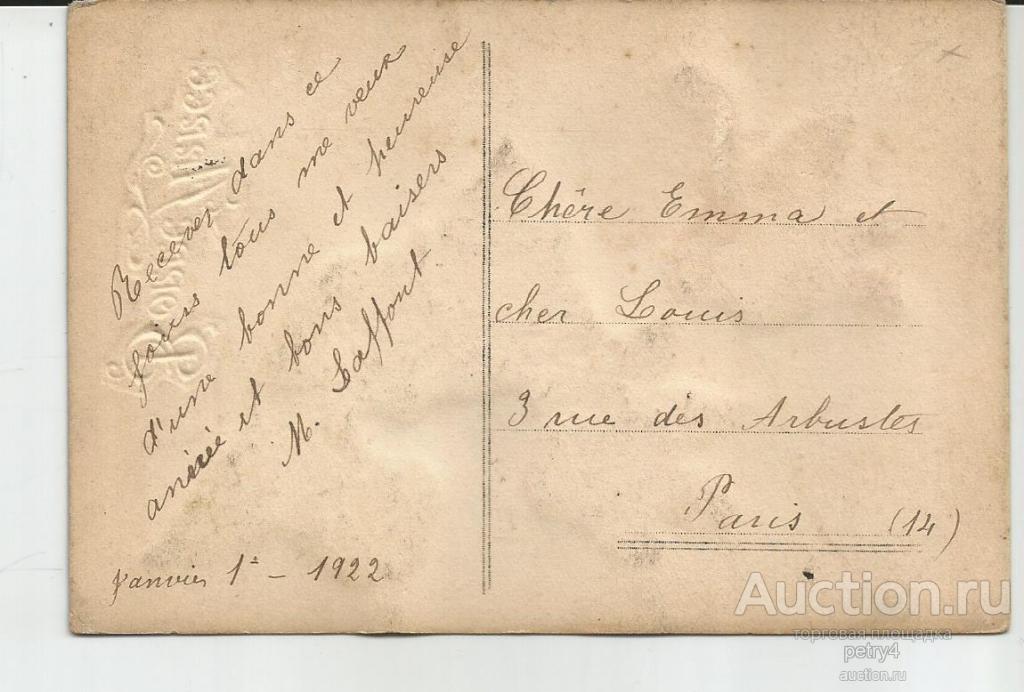 Recever dans ce
jours tous me veux
d'une bonne et heureuse
année et bons baisers
M. Laffont
Janvier 1ᵉ - 1922
Chère Emma et
cher Louis
3 rue des Arbustes
Paris (14)
Auction.ru
торговая площадка
petry4
auction.ru